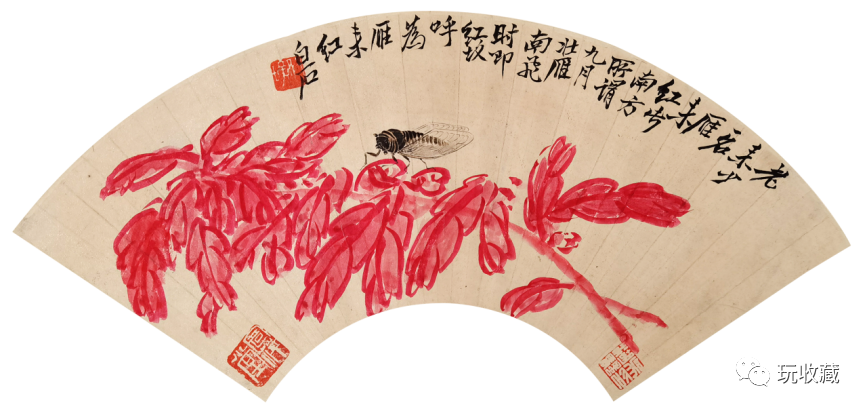 老
来少
名
雁
来
红
南方
所謂
九月
北雁
南飛
时即
红故
呼
為
雁
来
红
白石
玩收藏